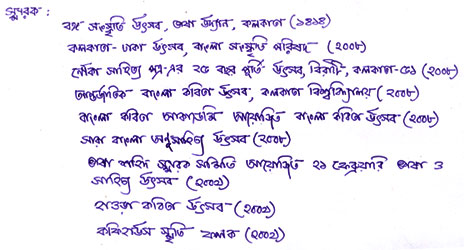 স্মারক :
বঙ্গ সংস্কৃতি উৎসব, তথ্য উদ্যান, কলকাতা (১৪১৪)
কলকাতা-ঢাকা উৎসব, বাংলা সংস্কৃতি পরিষদ (২০০৮)
নৌকা সাহিত্য পত্র-এর ২৫ বছর পূর্তি উৎসব, বিরাটি, কলকাতা-৫১ (২০০৮)
আন্তর্জাতিক বাংলা কবিতা উৎসব, কলকাতা বিশ্ববিদ্যালয় (২০০৮)
বাংলা কবিতা আকাদেমি আয়োজিত বাংলা কবিতা উৎসব (২০০৮)
সারা বাংলা অণুসাহিত্য উৎসব (২০০৮)
ভাষা শহিদ স্মারক সমিতি আয়োজিত ২১ ফেব্রুয়ারি ভাষা ও
সাহিত্য উৎসব (২০০৯)
হাওড়া কবিতা উৎসব (২০০৯)
স্মৃতি ফলক (২০০৯)